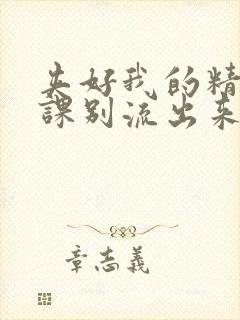 好我的精
課别流出来
章志義